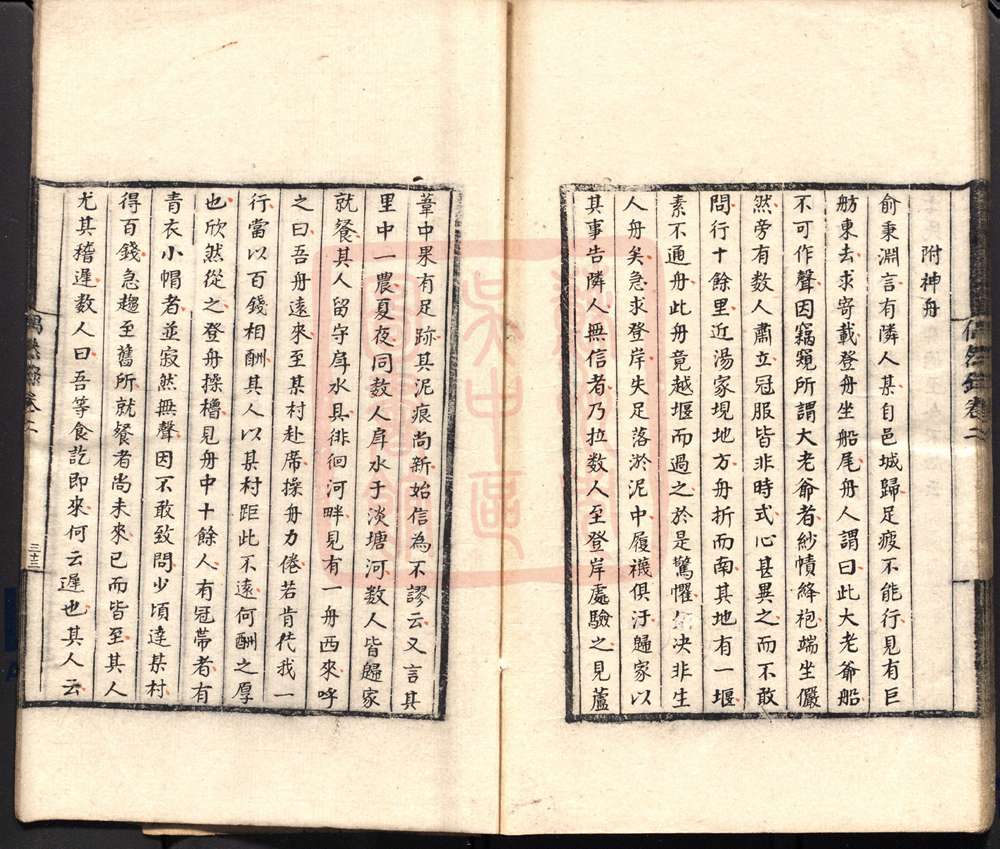 附神舟
俞秉淵言有隣人某自邑城歸足疲不能行見有巨
舫東去求寄載登舟坐船尾舟人謂曰此大老爺船
不可作聲因竊窺所謂大老爺者紗幘絳袍端坐儼
然旁有數人肅立冠服皆非時式心甚異之而不敢
問行十餘里近湯家垻地方舟折而南其地有一堰
素不通舟此舟竟越堰而過之於是驚懼知決非生
人舟矣急求登岸失足落淤泥中履襪俱汙歸家以
其事告隣人無信者乃拉数人至登岸處驗之見蘆
葦中果有足跡其泥痕尚新始信為不謬云又言其
里中一農夏夜同数人戽水于淡塘河数人皆歸家
就餐其人留守戽水具徘徊河畔見有一舟西來呼
之曰吾舟遠來至某村赴席操舟力倦若肯代我一
行當以百錢相酬其人以某村距此不遠何酬之厚
也欣然從之登舟操櫓見舟中十餘人有冠帶者有
青衣小帽者並寂然無聲因不敢致問少頃達某村
得百錢急趨至舊所就餐者尚未來已而皆至其人
尤其稽遲数人曰吾等食訖即來何云遲也其人云
偶然錄卷二
三十三